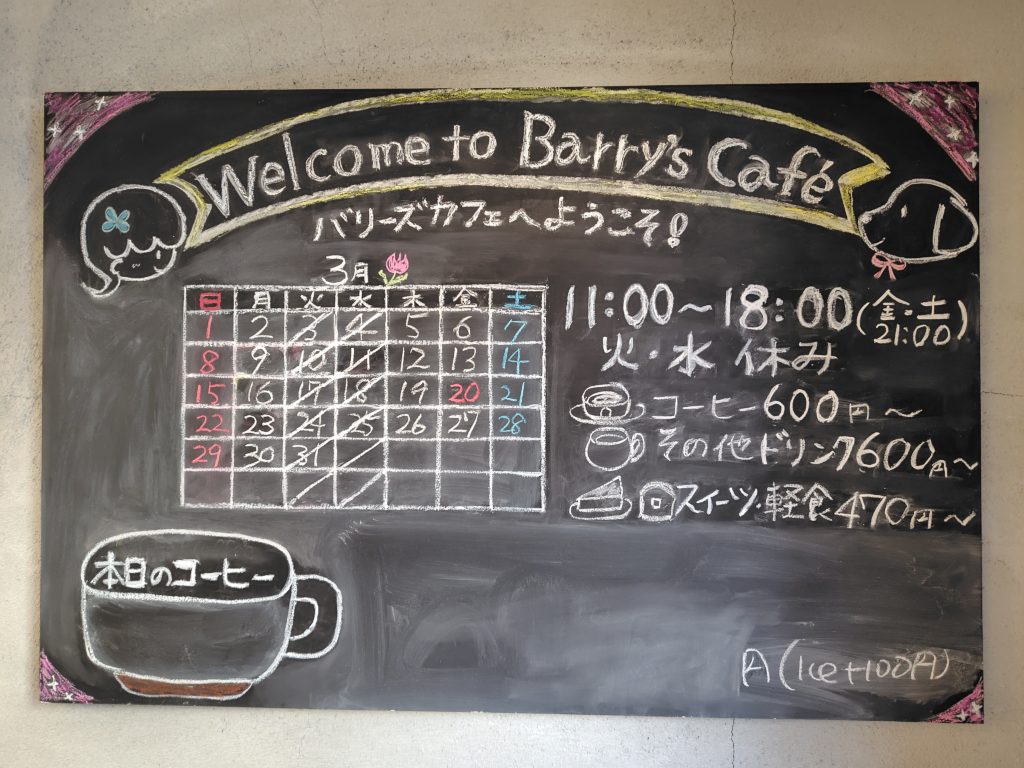 Welcome to Barry's Café
バリーズカフェへようこそ!
3月
日 月 火 水 木 金 土
1 2 3 4 5 6 7
8 9 10 11 12 13 14
15 16 17 18 19 20 21
22 23 24 25 26 27 28
29 30 31
11:00~18:00(金・土 21:00)
火・水 休み
コーヒー600円~
その他ドリンク600円~
スイーツ・軽食470円~
本日のコーヒー
円(Ice+100円)